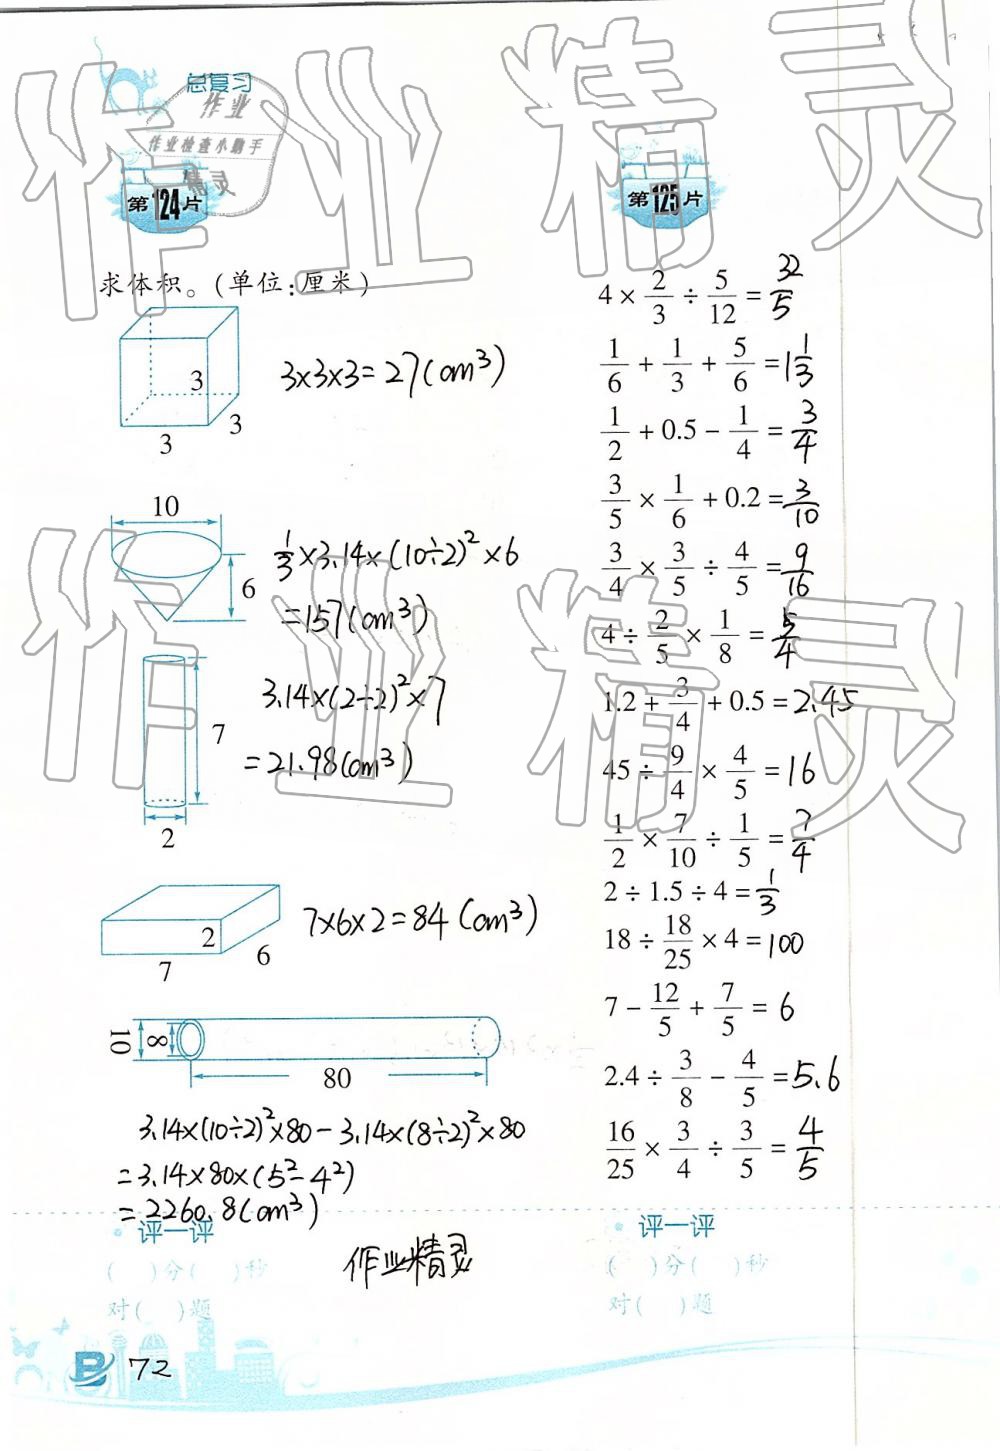 总复习
作业
作业检查小助手
精灵
第124片
求体积。(单位:厘米)
3
3
3
3×3×3=27(cm³)
10
6
1/3×3.14×(10÷2)²×6
=157(cm³)
7
2
3.14×(2÷2)²×7
=21.98(cm³)
2
6
7
7×6×2=84(cm³)
10
8
80
3.14×(10÷2)²×80-3.14×(8÷2)²×80
=3.14×80×(5²-4²)
=2260.8(cm³)
评一评
( )分( )秒
对( )题
作业精灵
72
第125片
4×2/3÷5/12=32/5
1/6+1/3+5/6=1 1/3
1/2+0.5-1/4=3/4
3/5×1/6+0.2=3/10
3/4×3/5÷4/5=9/16
4÷2/5×1/8=5/4
1.2+3/4+0.5=2.45
45÷9/4×4/5=16
1/2×7/10÷1/5=7/4
2÷1.5÷4=1/3
18÷18/25×4=100
7-12/5+7/5=6
2.4÷3/8-4/5=5.6
16/25×3/4÷3/5=4/5
评一评
( )分( )秒
对( )题
作业精灵
作业精灵